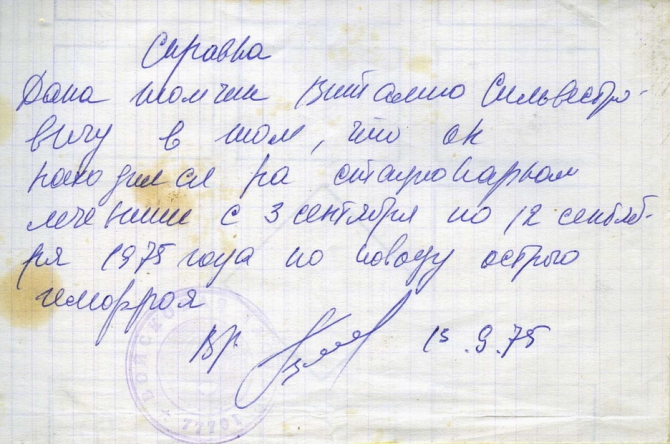 Справка
Дана Томчик Виталию Сильвестро-
вичу в том, что он
находился на стационарном
лечении с 3 сентября по 12 сентяб-
ря 1975 года по поводу острого
геморроя
Вр. 13.9.75
ВОЙСКО
77701